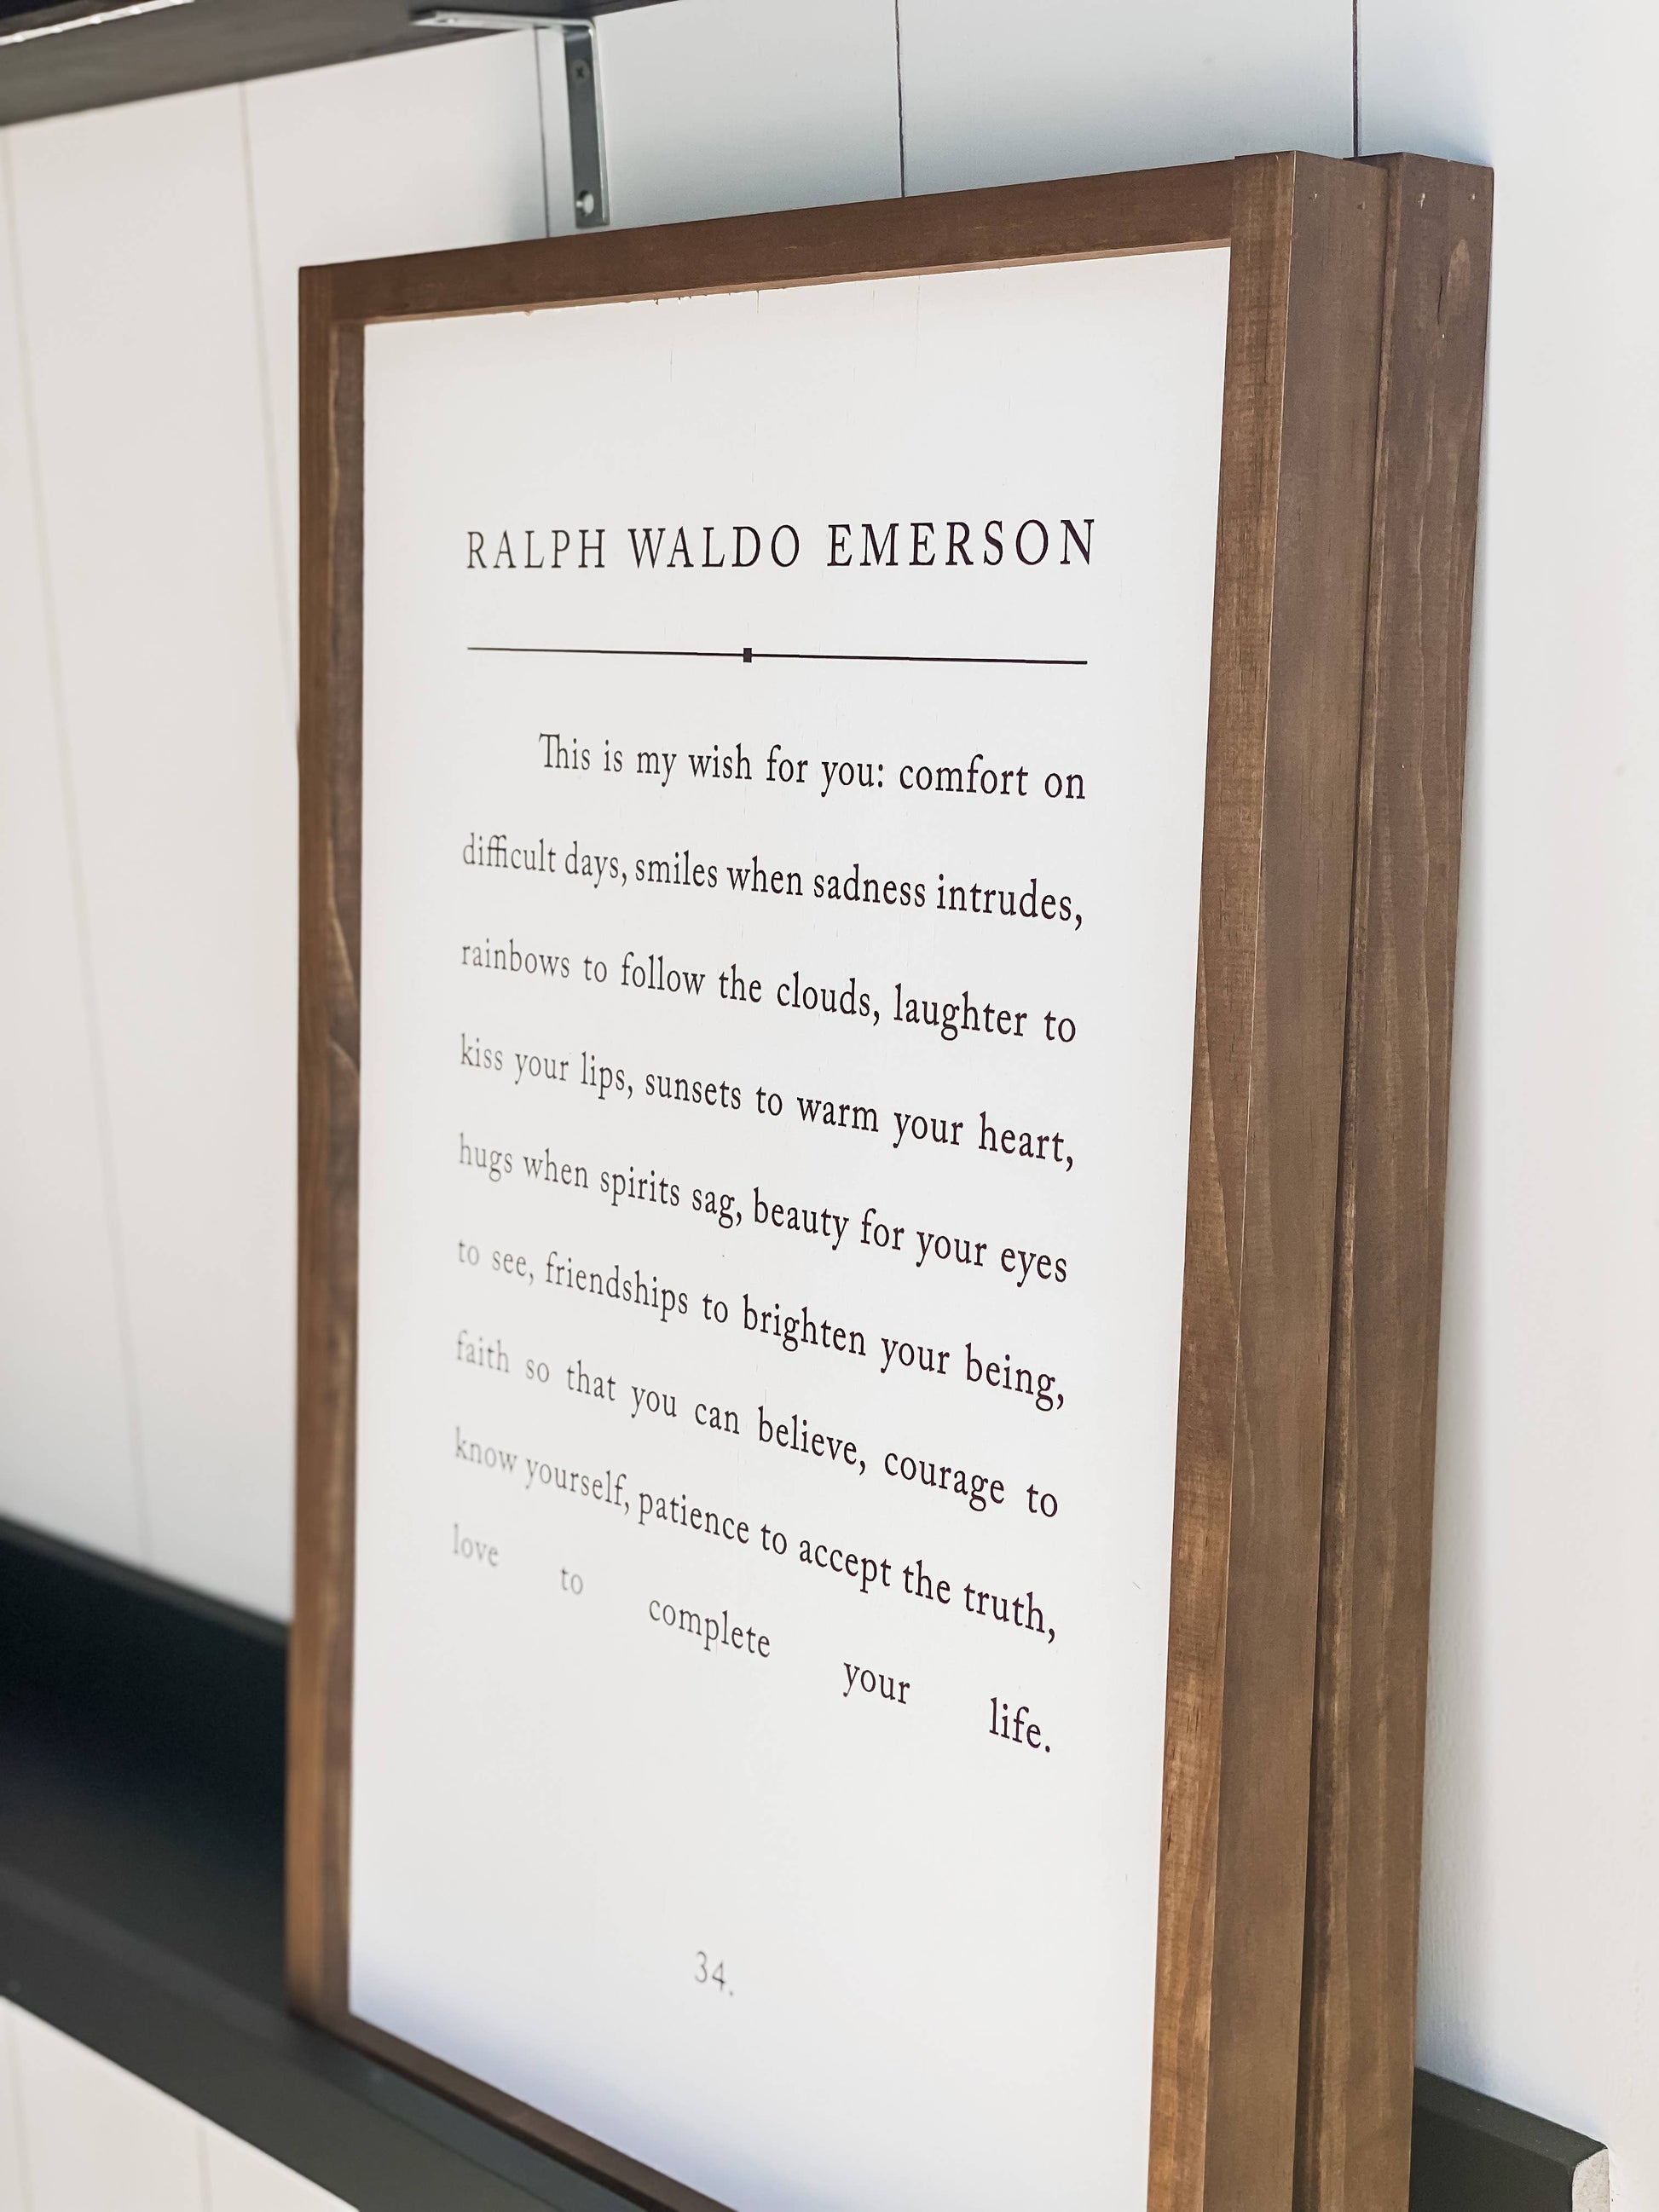 RALPH WALDO EMERSON
This is my wish for you: comfort on
difficult days, smiles when sadness intrudes,
rainbows to follow the clouds, laughter to
kiss your lips, sunsets to warm your heart,
hugs when spirits sag, beauty for your eyes
to see, friendships to brighten your being,
faith so that you can believe, courage to
know yourself, patience to accept the truth,
love to complete your life.
34.